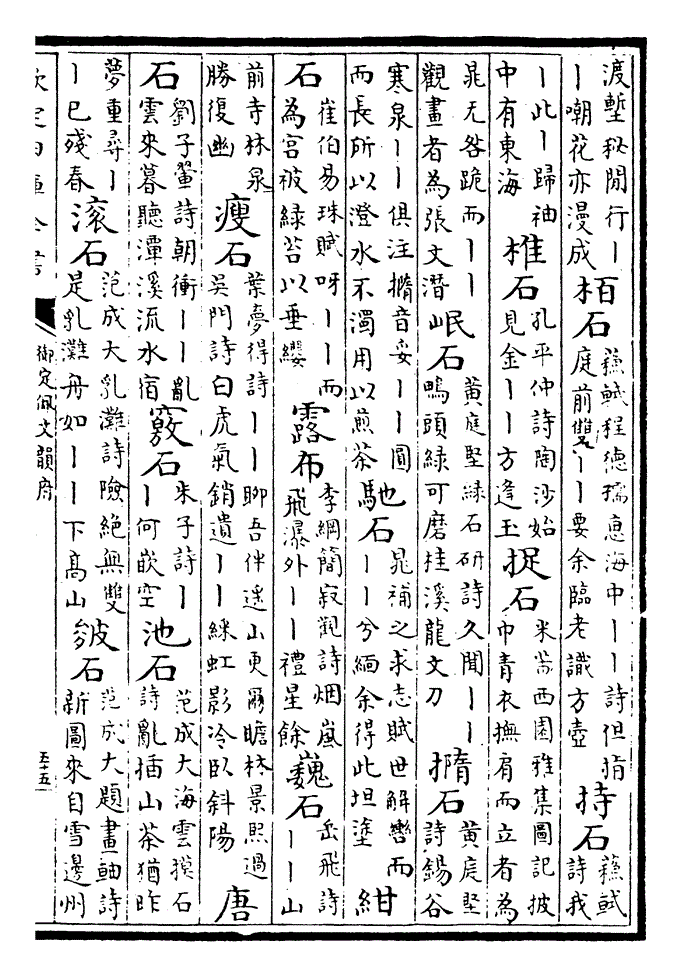 渡塹秋閒行丨
丨嘲花亦漫成
栢石
蘇軾程德孺惠海中丨丨詩但指
庭前雙丨丨要余臨老識方壺
持石
蘇軾
詩我
丨此丨歸袖
中有東海
椎石
孔平仲詩陶沙始
見金丨丨方逢玉
捉石
米芾西園雅集圖記披
巾青衣撫肩而立者為
晁无咎跪而丨丨
觀畫者為張文潛
岷石
黃庭堅綠石研詩久聞丨丨
鴨頭綠可磨桂溪龍文刀
撱石
黃庭堅
詩錫谷
寒泉丨丨俱注撱音妥丨丨圓
而長所以澄水不濁用以煎茶
馳石
晁補之求志賦世解轡而
丨丨兮緬余得此坦塗
紺
石
崔伯易珠賦呀丨丨而
為宮被綠苔以垂纓
露布
李綱簡寂觀詩烟嵐
飛瀑外丨丨禮星餘
巍石
岳飛詩
丨丨山
前寺林泉
勝復幽
瘦石
葉夢得詩丨丨聊吾伴遙山更爾瞻林景熙過
吳門詩白虎氣銷遺丨丨綵虹影冷臥斜陽
唐
石
劉子翬詩朝衝丨丨亂
雲來暮聽潭溪流水宿
竅石
朱子詩丨
丨何嵌空
池石
范成大海雲摸石
詩亂插山茶猶昨
夢重尋丨
丨已殘春
滾石
范成大乳灘詩險絕無雙
是乳灘舟如丨丨下高山
皴石
范成大題畫軸詩
新圖來自雪邊州
欽定四庫全書
御定佩文韻府
五十五